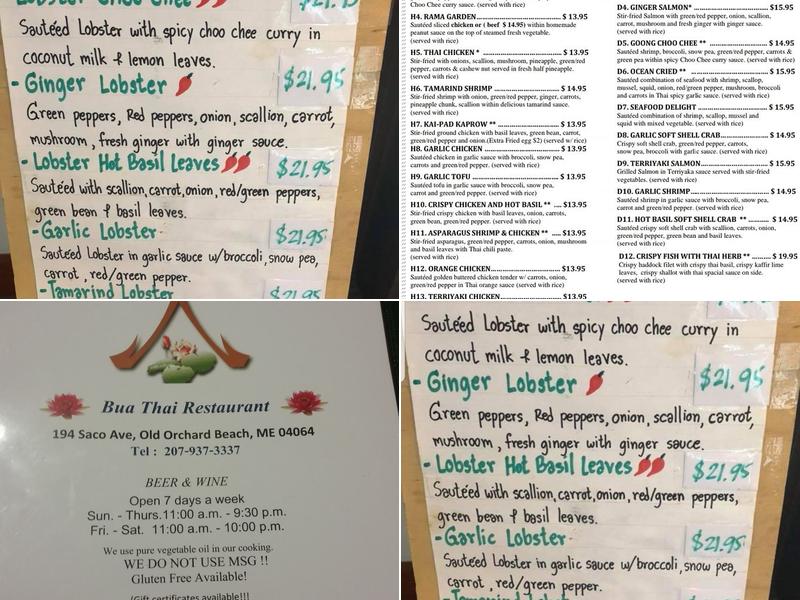 Lobster Choo Chee
$21.95
Sautéed Lobster with spicy choo chee curry in
coconut milk & lemon leaves.
- Ginger Lobster
$21.95
Green peppers, Red peppers, onion, scallion, carrot,
mushroom, fresh ginger with ginger sauce.
- Lobster Hot Basil Leaves
$21.95
Sautéed with scallion, carrot, onion, red/green peppers,
green bean & basil leaves.
- Garlic Lobster
$21.95
Sautéed Lobster in garlic sauce w/broccoli, snow pea,
carrot, red/green pepper.
- Tamarind Lobster
$21.95
(served with rice)
H4. RAMA GARDEN $ 13.95
Sautéed sliced chicken or ( beef $ 14.95) within homemade
peanut sauce on the top of steamed fresh vegetable.
(served with rice)
H5. THAI CHICKEN * $ 13.95
Stir-fried with onions, scallion, mushroom, pineapple, green/red
pepper, carrots & cashew nut served in fresh half pineapple.
(served with rice)
H6. TAMARIND SHRIMP $ 14.95
Stir-fried shrimp with onion, green/red pepper, ginger, carrots,
pineapple chunk, scallion within delicious tamarind sauce.
(served with rice)
H7. KAI-PAD KAPROW ** $ 13.95
Stir-fried ground chicken with basil leaves, green bean, carrot,
green/red pepper and onion.(Extra Fried egg $2) (served w/ rice)
H8. GARLIC CHICKEN $13.95
Sautéed chicken in garlic sauce with broccoli, snow pea,
carrots and green/red pepper. (served with rice)
H9. GARLIC TOFU $ 13.95
Sautéed tofu in garlic sauce with broccoli, snow pea,
carrot and green/red pepper. (served with rice)
H10. CRISPY CHICKEN AND HOT BASIL ** $ 13.95
Stir-fried crispy chicken with basil leaves, onion, carrots,
green bean, green/red pepper. (served with rice)
H11. ASPARAGUS SHRIMP & CHICKEN ** $13.95
Stir-fried asparagus, green/red pepper, carrots, onion, mushroom
and basil leaves with Thai chili paste.
(served with rice)
H12. ORANGE CHICKEN $13.95
Sautéed golden battered chicken tender w/ carrots, onion,
green/red pepper in Thai orange sauce (served with rice)
H13. TERRIYAKI CHICKEN $13.95
Choo Chee curry sauce. (served with rice)
D4. GINGER SALMON* $15.95
Stir-fried Salmon with green/red pepper, onion, scallion,
carrot, mushroom and fresh ginger with ginger sauce.
(served with rice)
D5. GOONG CHOO CHEE ** $ 14.95
Sautéed shrimp, broccoli, snow pea, green/red pepper, carrots &
green pea within spicy Choo Chee curry sauce. (served with rice)
D6. OCEAN CRIED ** $ 15.95
Sautéed combination of seafood with shrimp, scallop,
mussel, squid, onion, red/green pepper, mushroom, broccoli
and carrots in Thai spicy garlic sauce. (served with rice)
D7. SEAFOOD DELIGHT $ 15.95
Sautéed combination of shrimp, scallop, mussel and
squid with mixed vegetable. (served with rice)
D8. GARLIC SOFT SHELL CRAB $ 14.95
Crispy soft shell crab, green/red pepper, carrots,
snow pea, broccoli with garlic sauce. (served with rice)
D9. TERRIYAKI SALMON $ 15.95
Grilled Salmon in Terriyaka sauce served with stir-fried
vegetables. (served with rice)
D10. GARLIC SHRIMP $ 14.95
Sautéed shrimp in garlic sauce with broccoli, snow pea,
carrot and green/red pepper. (served with rice)
D11. HOT BASIL SOFT SHELL CRAB ** $ 14.95
Sautéed crispy soft shell crab with scallion, carrots, onion,
green/red pepper, green bean and basil leaves.
(served with rice)
D12. CRISPY FISH WITH THAI HERB ** $ 19.95
Crispy haddock filet with crispy thai basil, crispy kaffir lime
leaves, crispy shallot with thai spacial sauce on side.
(served with rice)
Bua Thai Restaurant
194 Saco Ave, Old Orchard Beach, ME 04064
Tel : 207-937-3337
BEER & WINE
Open 7 days a week
Sun. - Thurs.11:00 a.m. - 9:30 p.m.
Fri. - Sat. 11:00 a.m. - 10:00 p.m.
We use pure vegetable oil in our cooking.
WE DO NOT USE MSG !!
Gluten Free Available!
(Gift certificates available!!!
Sautéed Lobster with spicy choo chee curry in
coconut milk & lemon leaves.
- Ginger Lobster
$21.95
Green peppers, Red peppers, onion, scallion, carrot,
mushroom, fresh ginger with ginger sauce.
- Lobster Hot Basil Leaves
$21.95
Sautéed with scallion, carrot, onion, red/green peppers,
green bean & basil leaves.
- Garlic Lobster
$21.95
Sautéed Lobster in garlic sauce w/broccoli, snow pea,
carrot, red/green pepper.
Tamarind Lobster